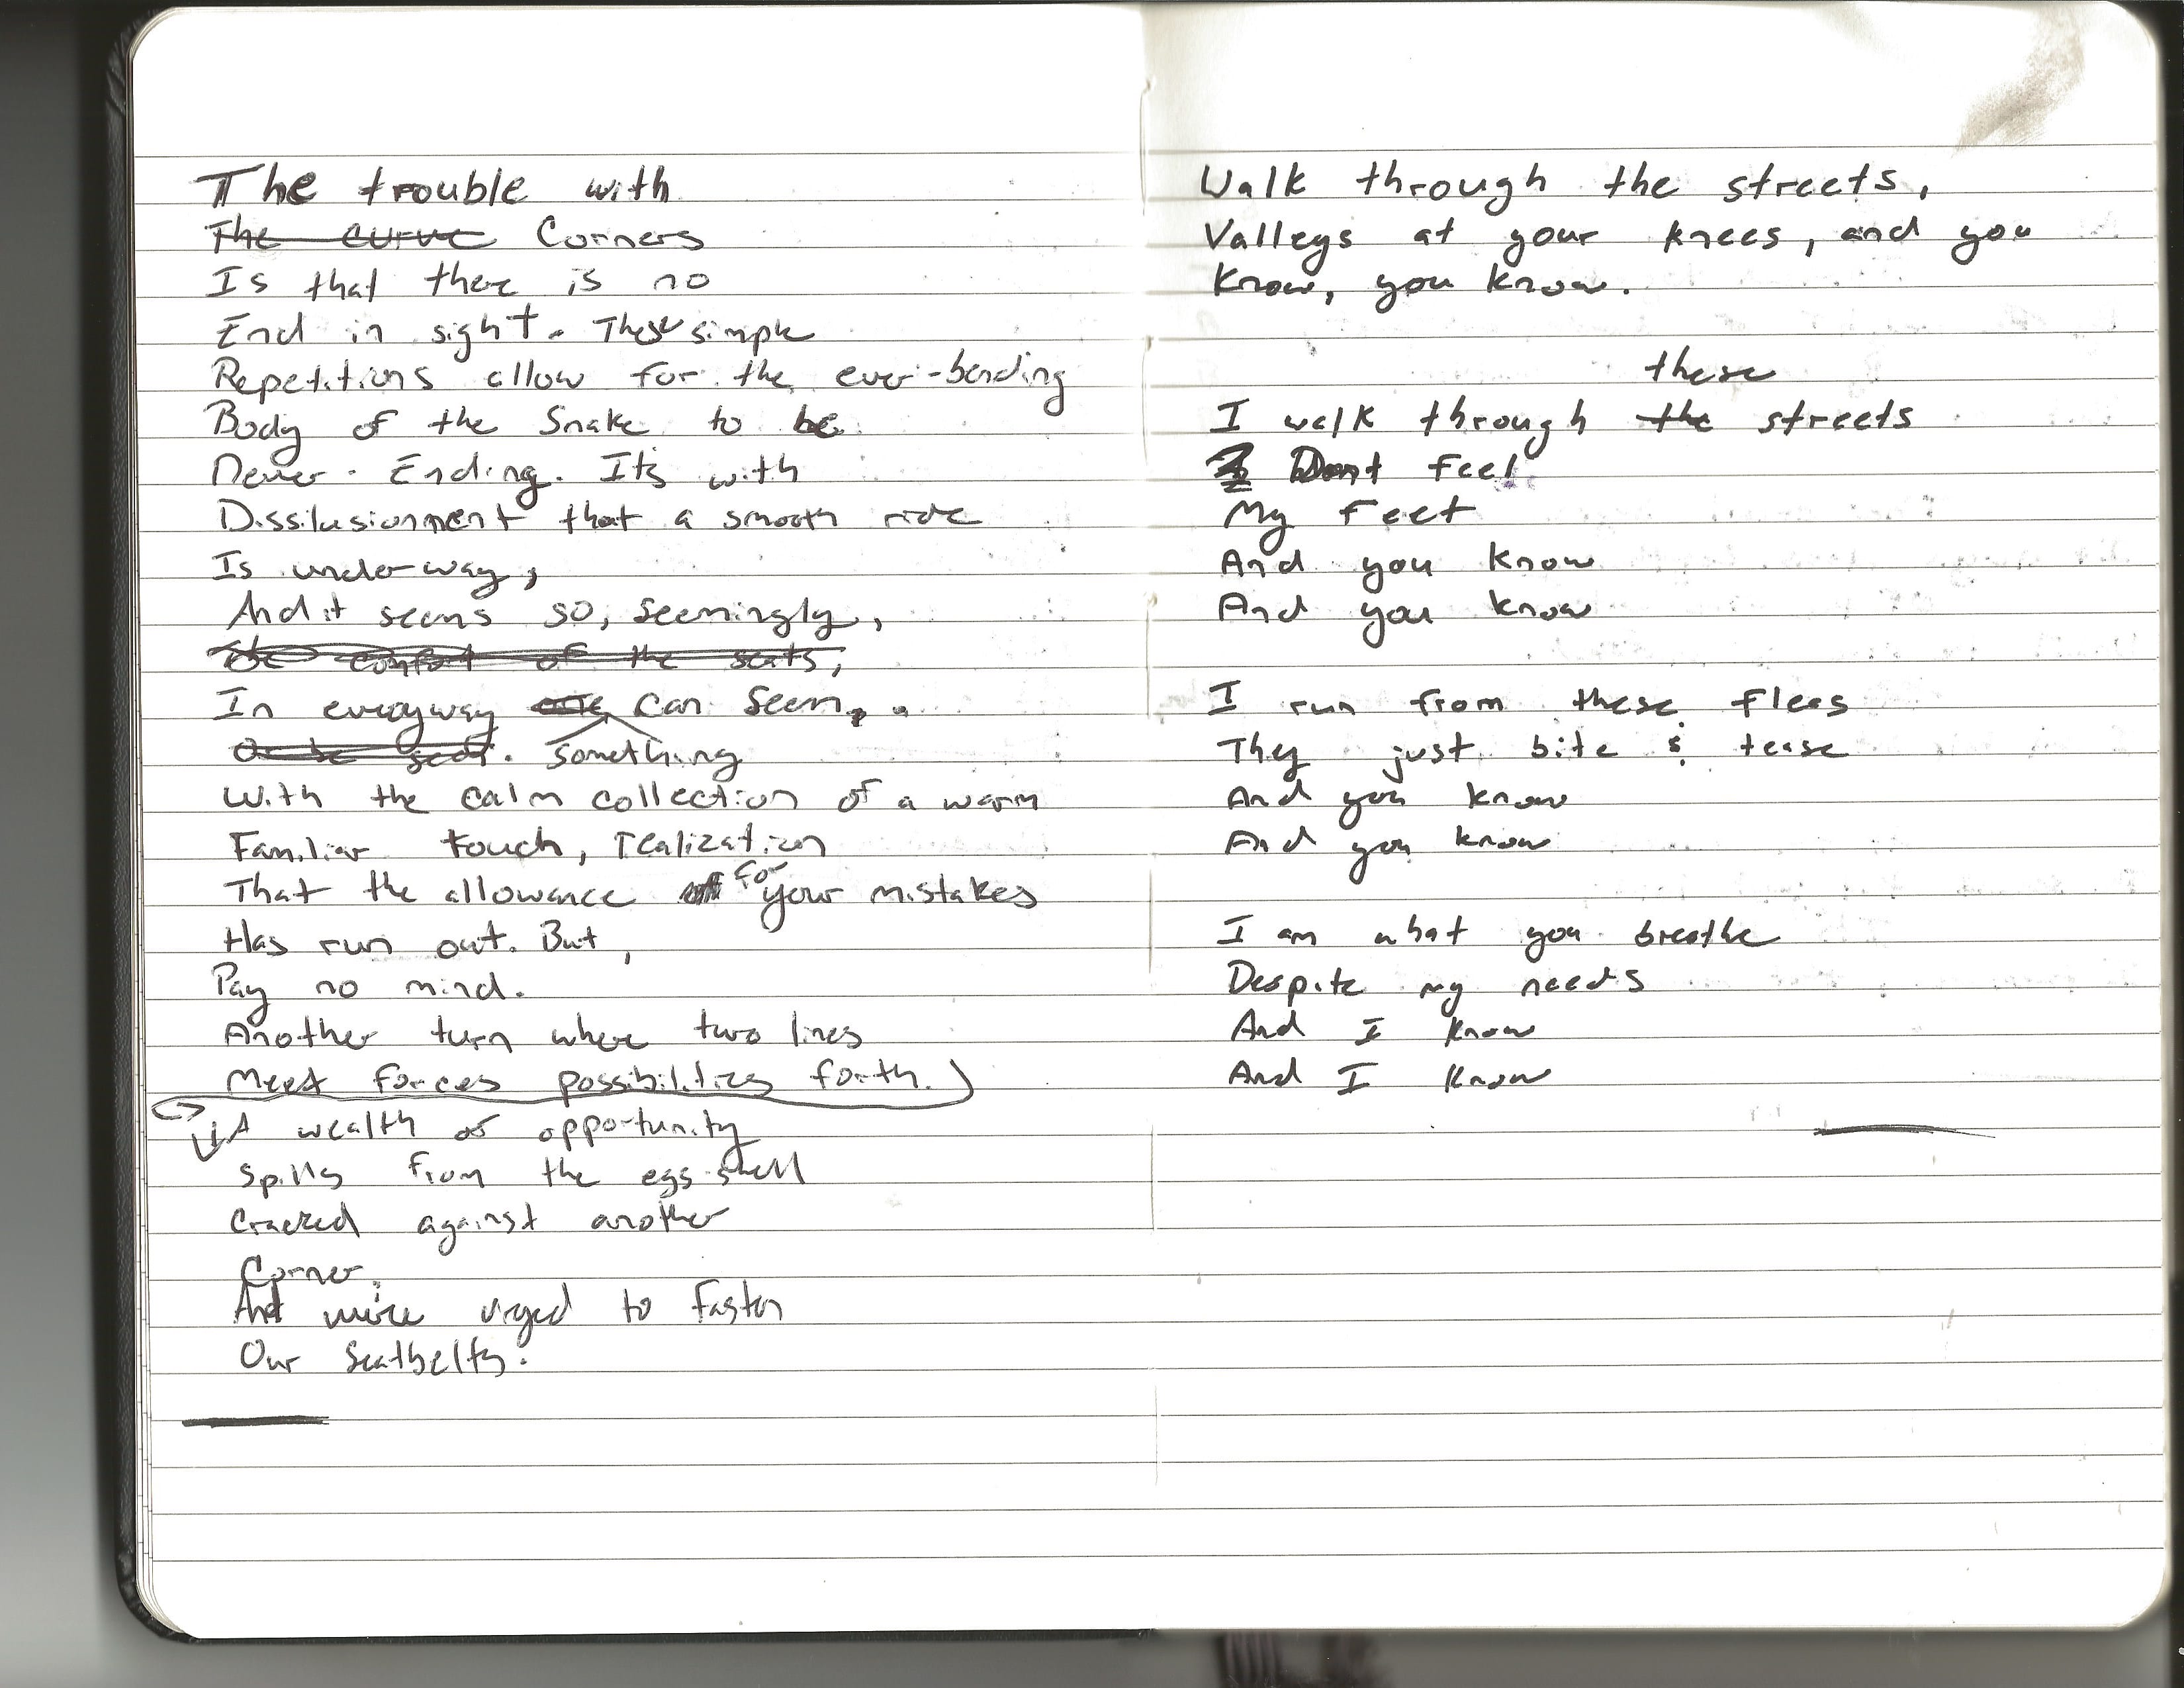 The trouble with
The curve Corners
Is that there is no
End in sight. These simple
Repetitions allow for the ever-bending
Body of the Snake to be
Never-Ending. Its with
Dissilusionment that a smooth ride
Is underway,
And it seems so, seemingly,
The comfort of the seats,
In everyway one can seem.
Or be seen. something
With the calm collection of a warm
Familiar touch, realization
That the allowance of for your mistakes
Has run out. But,
Pay no mind.
Another turn where two lines
Meet forces possibilities forth.
A wealth of opportunity
Spills from the egg-shell
Cracked against another
Corner.
And we're urged to fasten
Our Seatbelts.
Walk through the streets,
Valleys at your knees, and you
Know, you know.
these
I walk through the streets
I Dont feel
My feet
And you know
And you know
I run from these fleas
They just bite & tease
And you know
And you know
I am what you breathe
Despite my needs
And I know
And I know